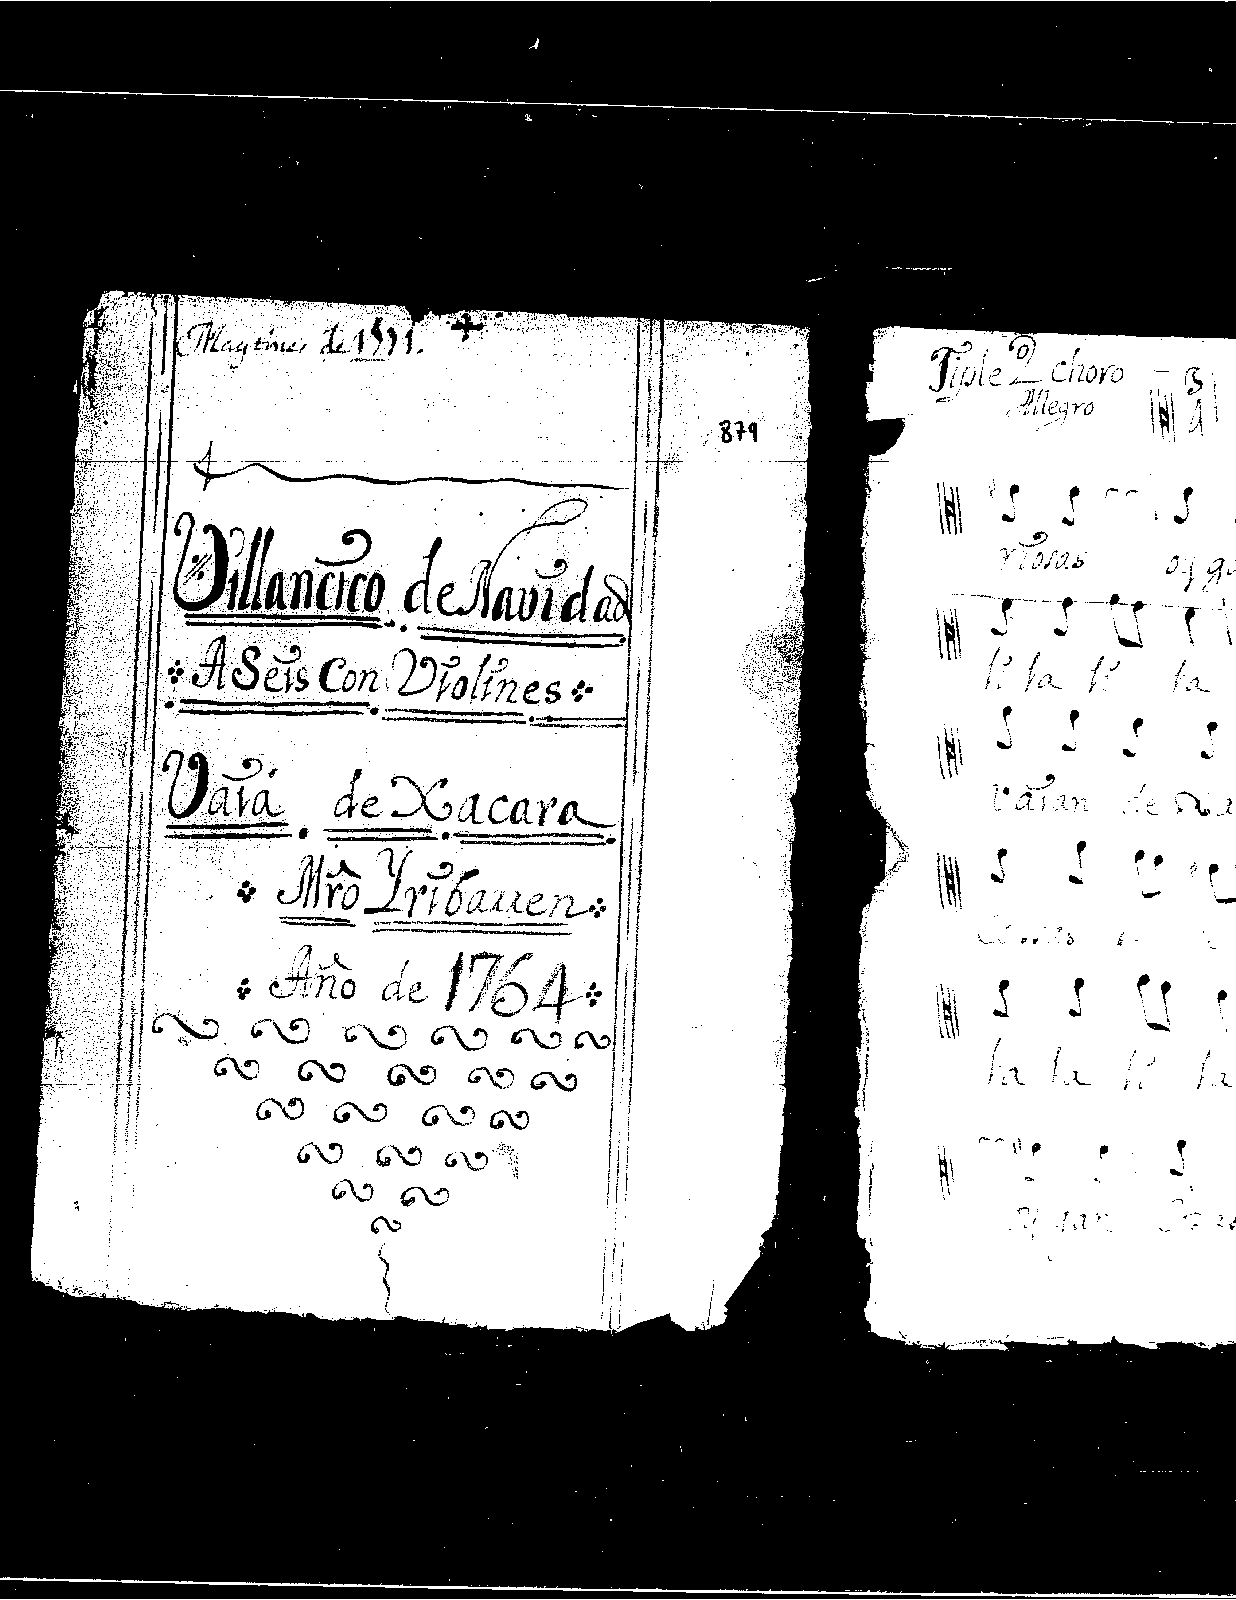 Maytines de 1771.
879
Villancico de Navidad
A Seis Con Violines
Vaia de Xacara
Mro Yribarren
Año de 1764
Tiple 2º choro
Allegro
3
4
riosas oygan
li la li la
vaian de
la la li la
oygan